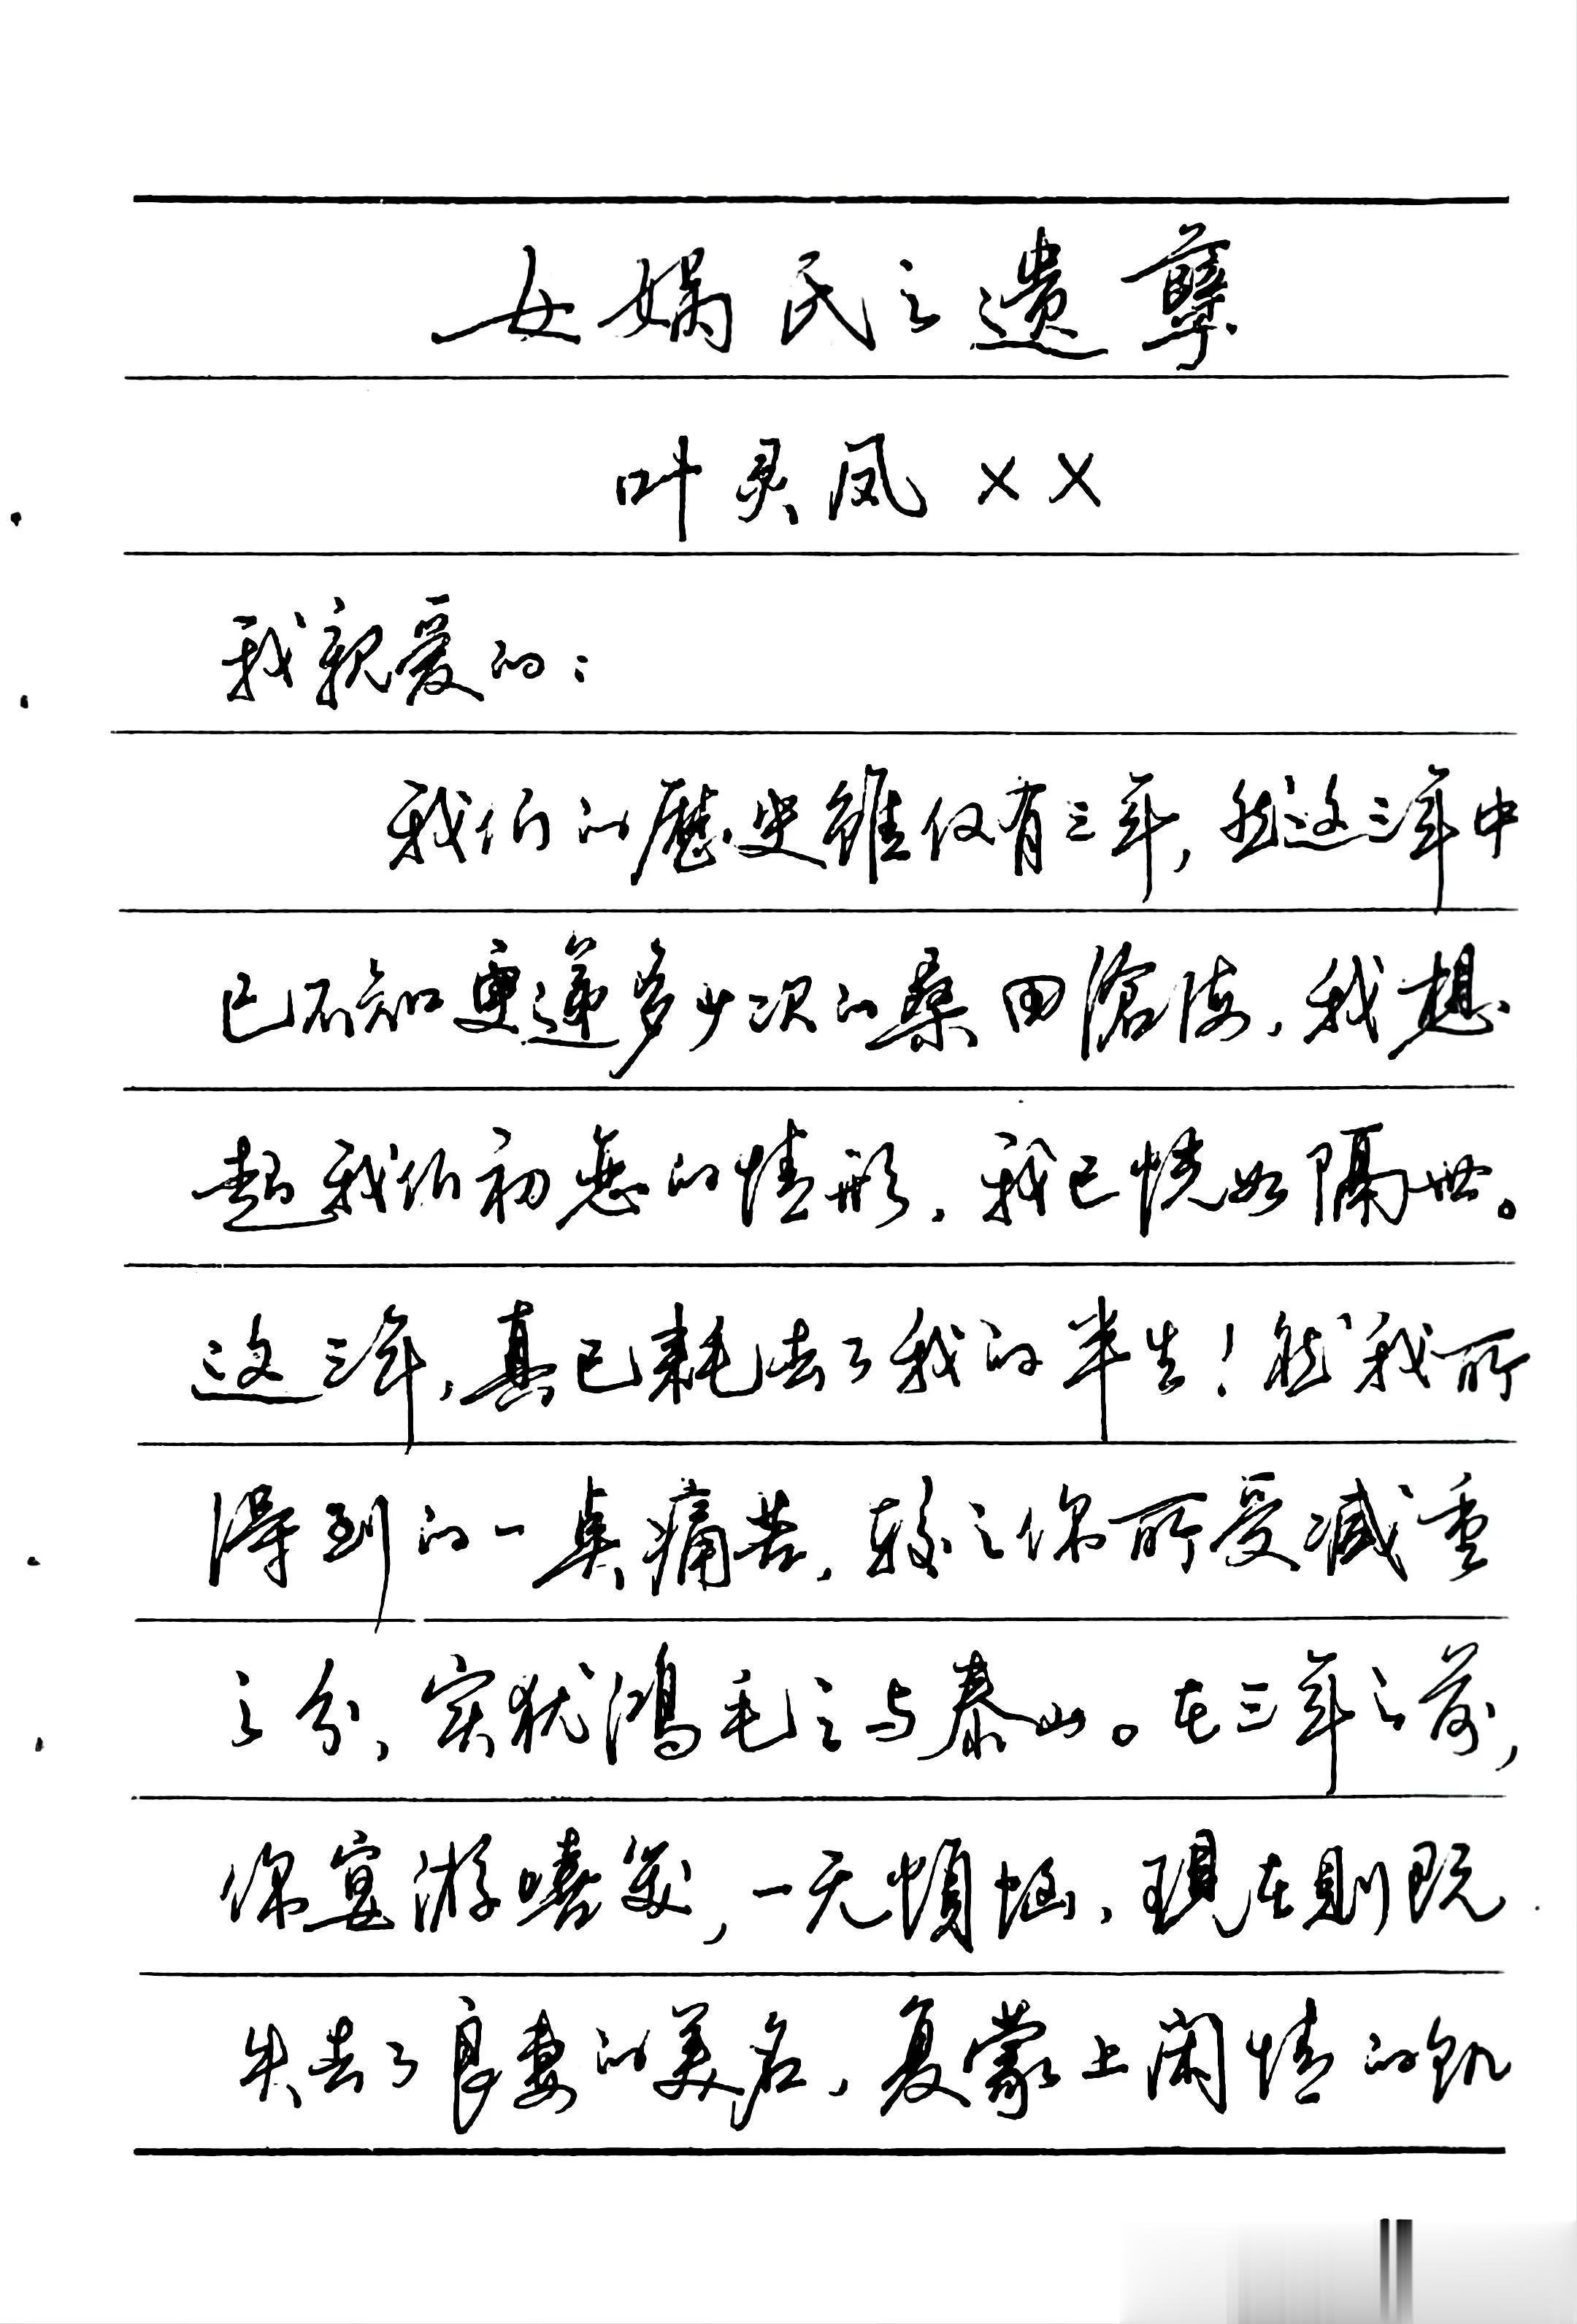 女娲氏之遗孽
叶灵凤××
我親爱的：
我们的歷史雖仅有三年，然这三年中
已不知更递多少次的桑田滄海，我想
起我们初恋的情形，我已恍如隔世。
这三年，真已耗去了我的半生！然我所
得到的一点痛苦，较之你所受减重
之分，实犹鸿毛之与泰山。在三年之前，
你宴游嘻笑，一无煩惱，現在則既
失去了良妻的美名，复蒙上闲情的讥